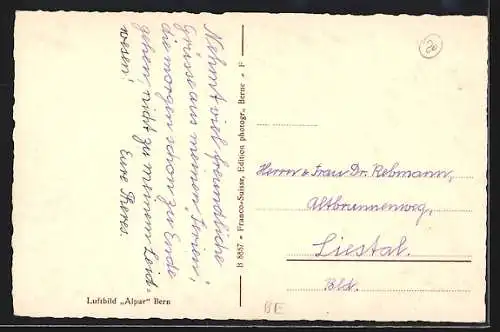 Nehmt viel freundliche
Grüsse aus meinen Ferien,
die morgen schon zu Ende
gehen, nicht zu meinem Leid-
wesen!
Eure Theres.
B 8857 - Franco-Suisse, Edition photogr., Berne - F
Luftbild „Alpar" Bern
20
Herrn & Frau Dr. Rebmann,
Altbrunnenweg,
Liestal.
Bld.
BE